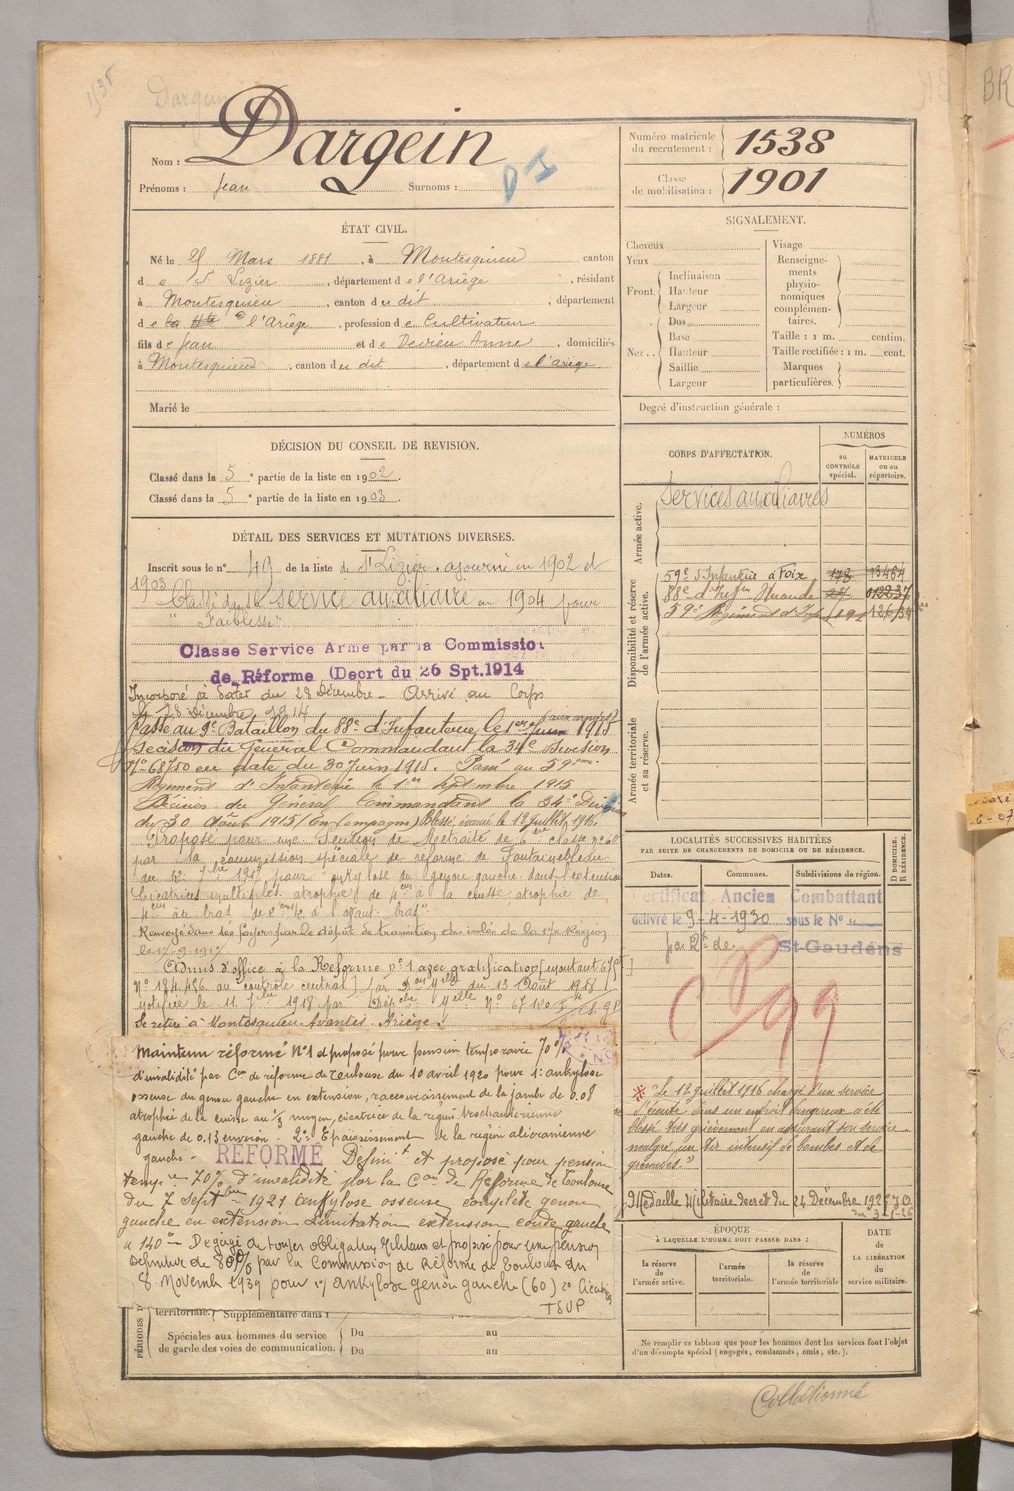 Dargein
Nom : Dargein
Prénoms : Jean Surnoms :
Numéro matricule du recrutement : 1538
Classe de mobilisation : 1901
ÉTAT CIVIL.
Né le 25 Mars 1881, à Montesquieu canton
de St Lizier, département de l'Ariège, résidant
à Montesquieu, canton du dit, département
de la Hte l'Ariège, profession de Cultivateur
fils de Jean et de Devieu Anne, domiciliés
à Montesquieu, canton du dit, département de l'ariège
Marié le
SIGNALEMENT.
Cheveux
Yeux
Front. Inclinaison Hauteur Largeur
Nez.. Dos Base Hauteur Saillie Largeur
Visage
Renseignements physionomiques complémentaires.
Taille : 1 m. centim.
Taille rectifiée : 1 m. cent.
Marques particulières.
Degré d'instruction générale :
DÉCISION DU CONSEIL DE REVISION.
Classé dans la 5e partie de la liste en 1902.
Classé dans la 5e partie de la liste en 1903.
DÉTAIL DES SERVICES ET MUTATIONS DIVERSES.
Inscrit sous le n° 49 de la liste de St Lizier. ajourné en 1902 et
1903
Classé dans le service auxiliaire en 1904 pour
"Faiblesse"
Classe Service Arme par la Commission
de Réforme (Decrt du 26 Spt.1914
Incorporé à dater du 28 Décembre - Arrivé au Corps
le 28 Décembre 1914
Passé au 9e Bataillon du 88e d'Infanterie le 1er 1915
Decision du Général Commandant la 34e division
N° 68750 en date du 30 Juin 1915. Passé au 59eme
Régiment d'Infanterie le 1er septembre 1915
Décision du Général Commandant la 34e Division
du 30 Août 1915 (En Campagne) Blessé, évacué le 12 juillet 1916.
Proposé pour une Pension de Retraite de 6e classe
par la commission spéciale de réforme de Fontainebleau
du 12 7bre 1917 pour ankylose du genou gauche dans l'extension
Cicatrices multiples. atrophie de 4cm à la cuisse atrophie de
4cm au bras, de 2cm ½ à l'avant-bras"
Renvoyé dans ses foyers par le dépôt de transition des isolés de la 17e Région
le 17-9-1917
Admis d'office à la Réforme n° 1 avec gratification [
N° 184.456 au contrôle central] par Don Mlle du 13 Août 1918
notifiée le 11 7bre 1918 par Dépche Mlle N° 67.100
Se retire à Montesquieu-Avantès. Ariège.
Maintenu réformé N°1 et proposé pour pension temporaire 70%
d'invalidité par Con de réforme de Toulouse du 10 avril 1920 pour 1: ankylose
osseuse du genou gauche en extension, raccourcissement de la jambe de 0.08
atrophie de la cuisse au ⅓ moyen, cicatrice de la région trochantérienne
gauche de 0.13 environ. 2°: Epaississement de la région olécranienne
gauche - REFORMÉ Définit et proposé pour pension
tempre 70% d'invalidité par la Con de Réforme de Toulouse
du 7 Septbre 1921 Ankylose osseuse complète genou
gauche en extension Limitation extension coude gauche
à 140° - Dégagé de toutes obligations Militaires et proposé pour une pension
définitive de 80% par la Commission de Réforme de Toulouse du
8 Novembre 1939 pour 1°) ankylose genou gauche (60) 2°
TSVP
CORPS D'AFFECTATION.
NUMÉROS
au CONTRÔLE spécial.
MATRICULE ou au répertoire.
Armée active.
Services auxiliaires
Disponibilité et réserve de l'armée active.
59e d'Infanterie à Foix 178 13464
88e d'Infrie Mirande 012237
59e Régiment d'Infie
Armée territoriale et sa réserve.
LOCALITÉS SUCCESSIVES HABITÉES
PAR SUITE DE CHANGEMENTS DE DOMICILE OU DE RÉSIDENCE.
D DOMICILE. R RÉSIDENCE.
Dates. Communes. Subdivisions de région.
Certificat Ancien Combattant
délivré le 9-4-1930 sous le N°
St-Gaudens
"Le 12 juillet 1916 chargé d'un service
d'écoute dans un endroit dangereux a été
blessé très grièvement en assurant son service
malgré un tir intensif de bombes et de
grenades."
Médaille Militaire decret du 24 Décembre 192
ÉPOQUE
À LAQUELLE L'HOMME DOIT PASSER DANS :
la réserve de l'armée active.
l'armée territoriale.
la réserve de l'armée territoriale
DATE de LA LIBÉRATION du service militaire.
Ne remplir ce tableau que pour les hommes dont les services font l'objet
d'un décompte spécial (engagés, condamnés, omis, etc.).
territoriale. Supplémentaire dans
Spéciales aux hommes du service
de garde des voies de communication.
Du au
Du au
Collationné
BR